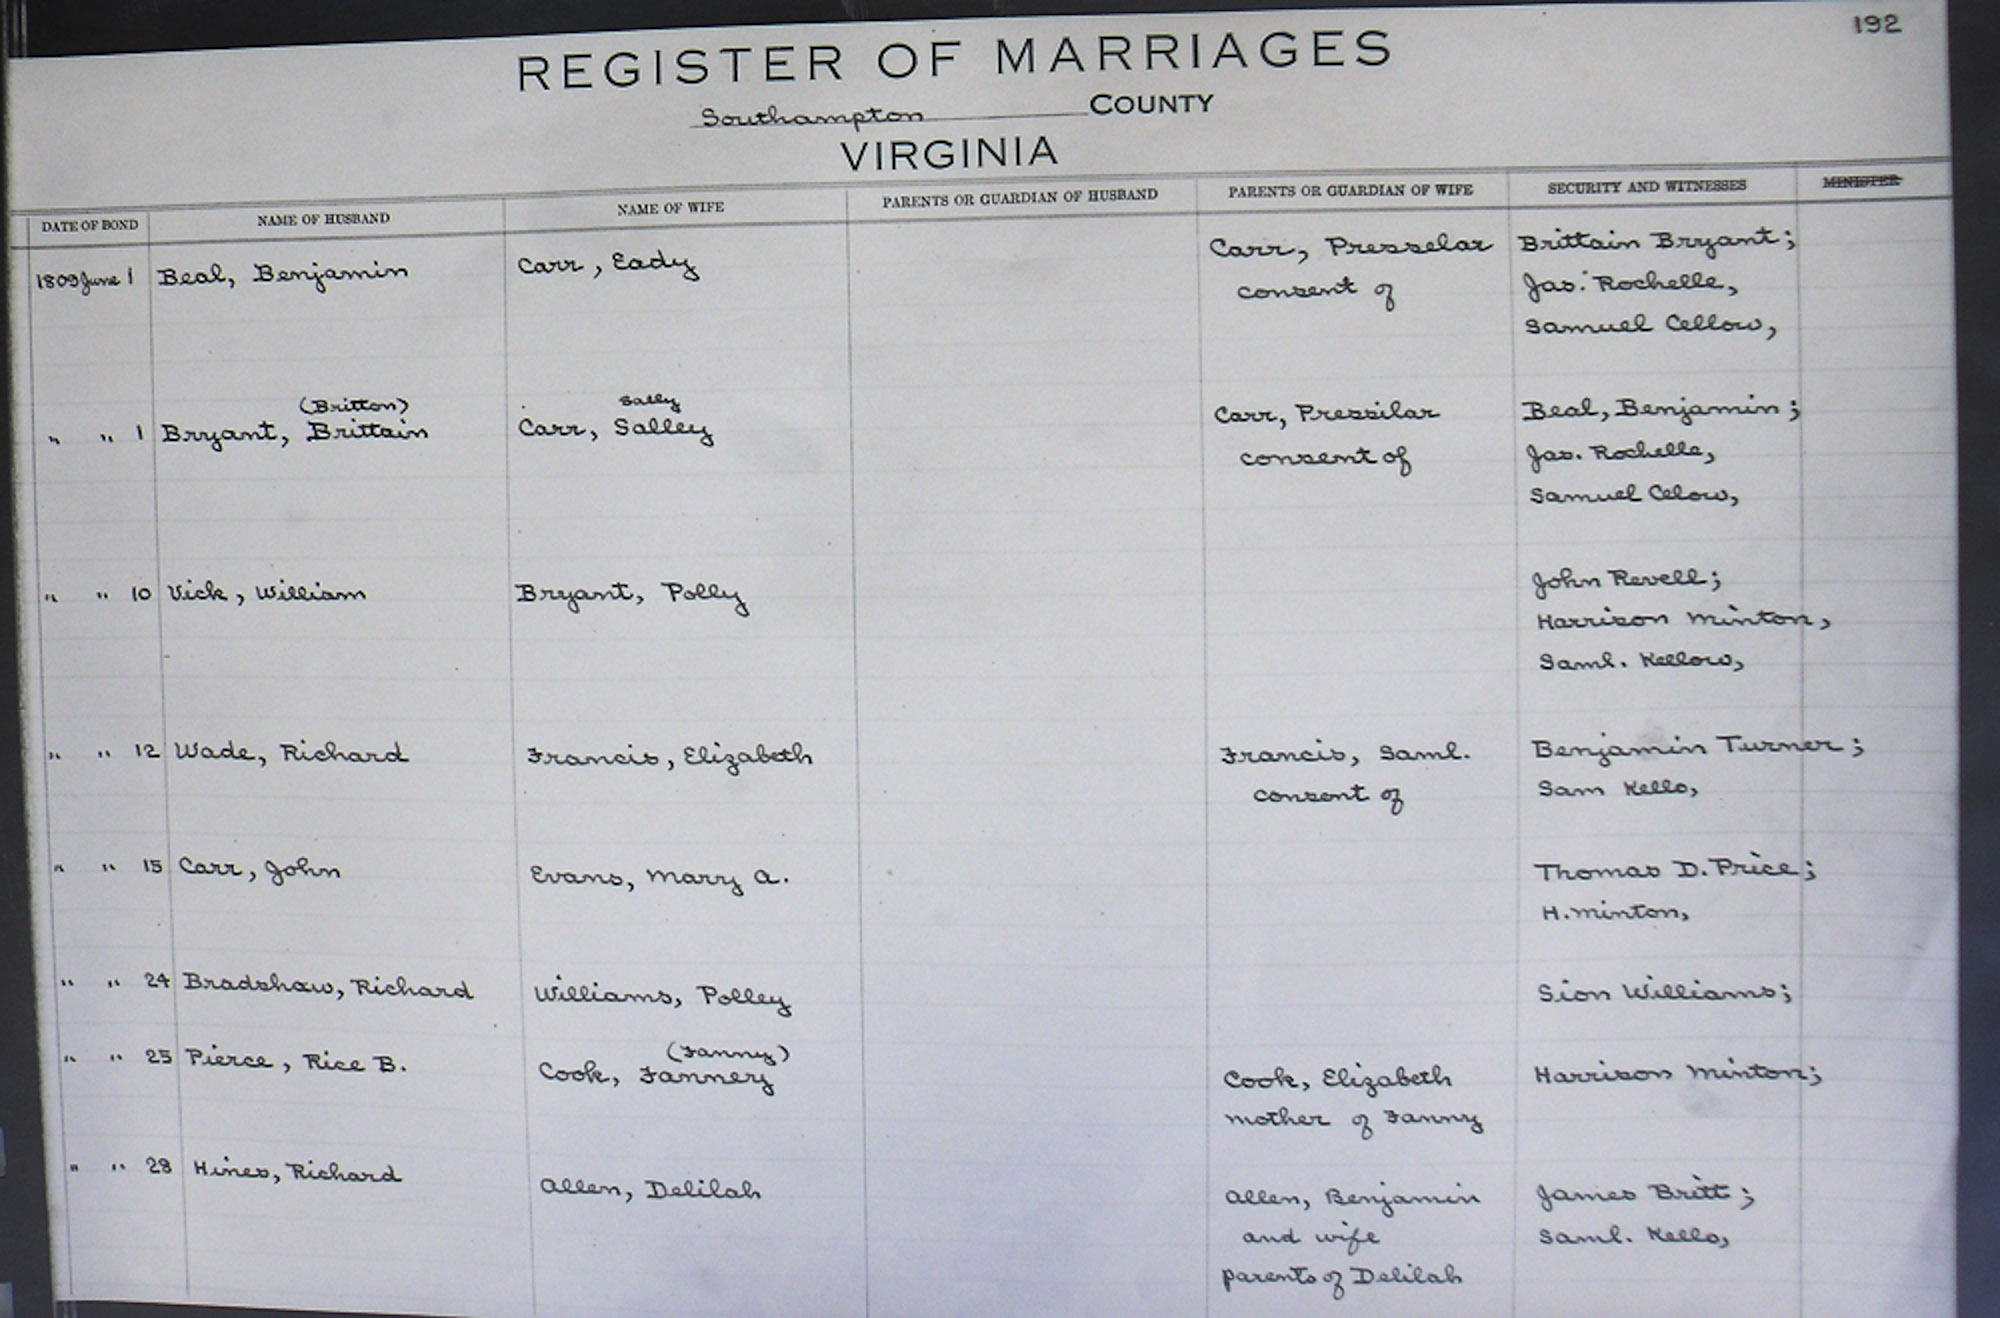 192
REGISTER OF MARRIAGES
Southampton COUNTY
VIRGINIA
DATE OF BOND NAME OF HUSBAND NAME OF WIFE PARENTS OR GUARDIAN OF HUSBAND PARENTS OR GUARDIAN OF WIFE SECURITY AND WITNESSES MINISTER
1809 June 1 Beal, Benjamin Carr, Eady Carr, Presselar Brittain Bryant;
consent of Jas. Rochelle,
Samuel Cellow,
(Britton) Sally
" " 1 Bryant, Brittain Carr, Salley Carr, Pressilar Beal, Benjamin;
consent of Jas. Rochelle,
Samuel Celow,
" " 10 Vick, William Bryant, Polly John Revell;
Harrison Minton,
Saml. Kellow,
" " 12 Wade, Richard Francis, Elizabeth Francis, Saml. Benjamin Turner;
consent of Sam Kello,
" " 15 Carr, John Evans, Mary A. Thomas D. Price;
H. Minton,
" " 24 Bradshaw, Richard Williams, Polley Sion Williams;
(Fanny)
" " 25 Pierce, Rice B. Cook, Fannery Cook, Elizabeth Harrison Minton;
mother of Fanny
" " 28 Hines, Richard Allen, Delilah Allen, Benjamin James Britt;
and wife Saml. Kello,
parents of Delilah